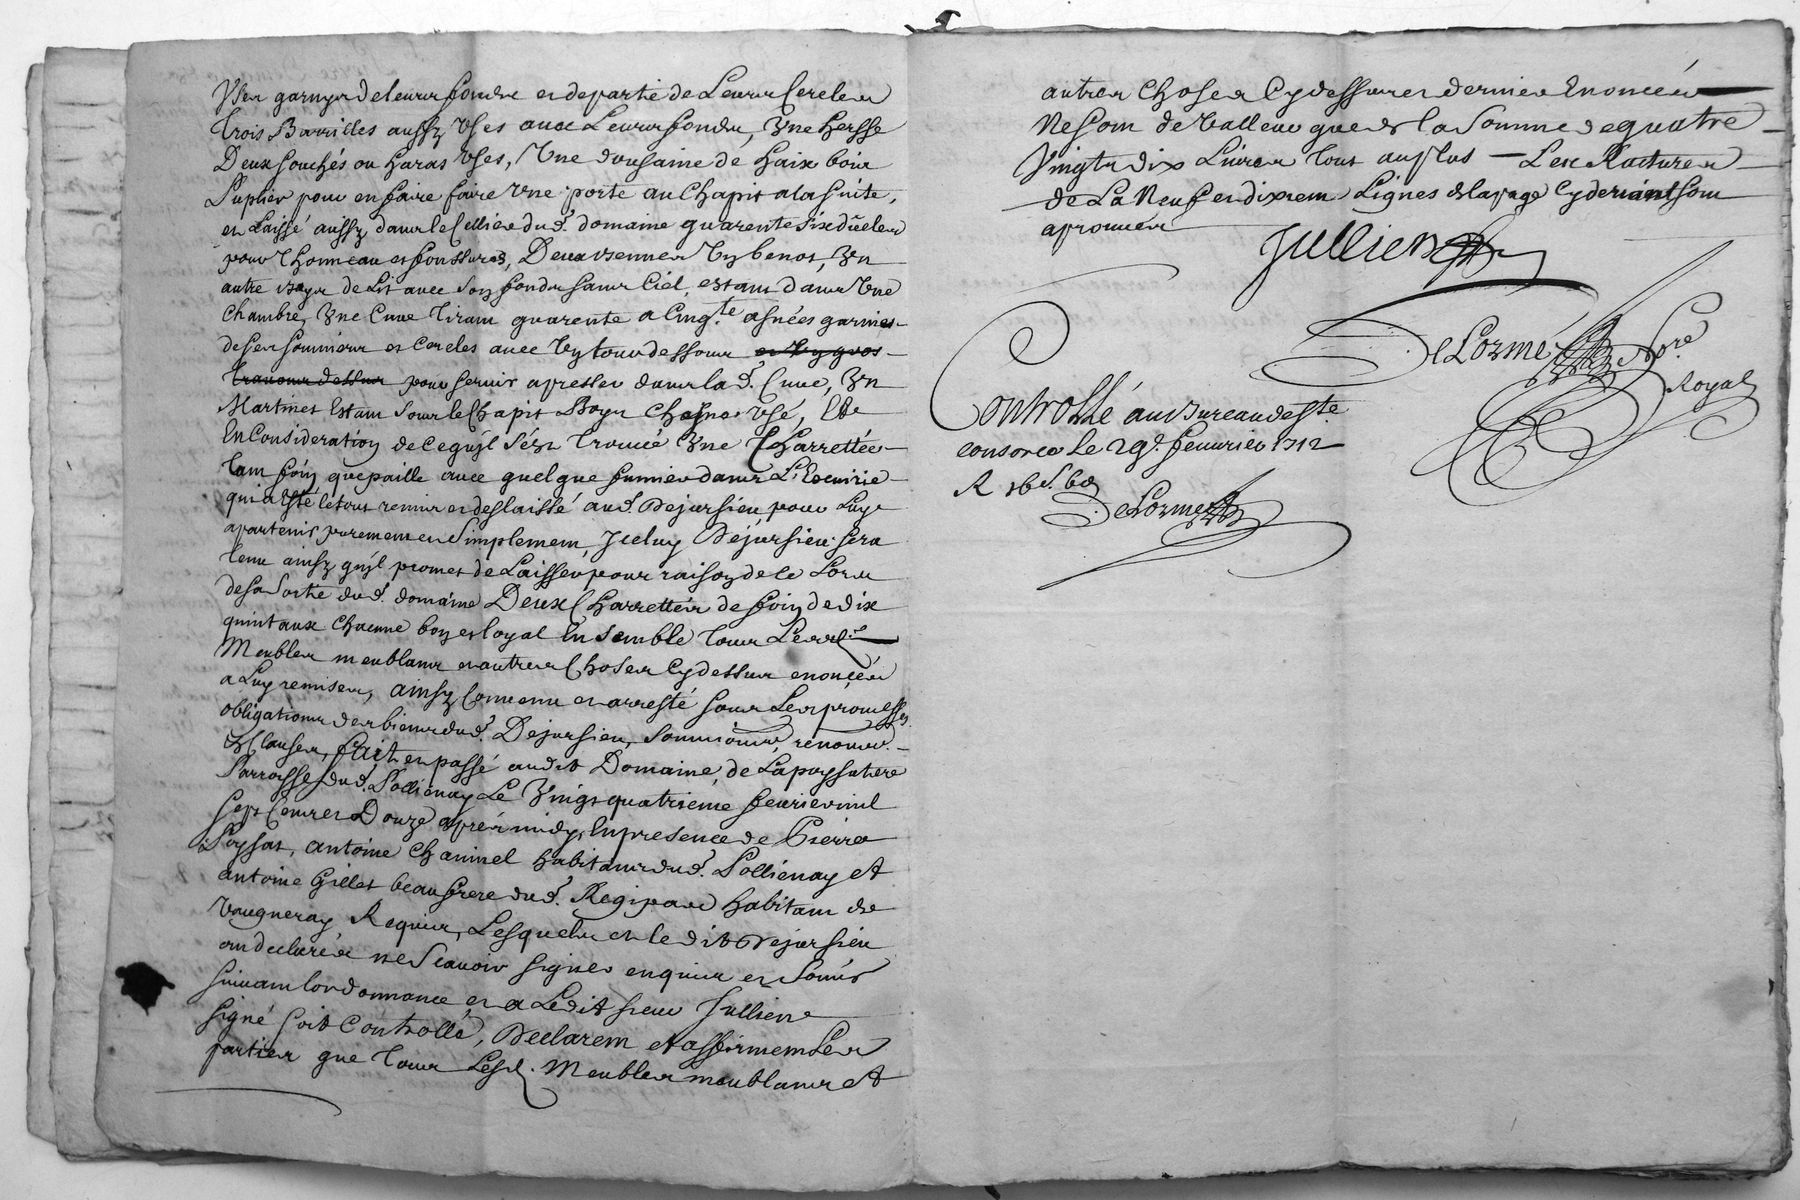 Vses garnyes de leurs fondz et de partie de Leurs Cercles
Trois Barrilles aussy Vses auec Leurs fondz, Vne hersse
Deux souchés ou haras Vses, Vne dousaine de haix bois
Puplier pour en faire faire Vne porte au Chapit a la suite,
et Laissé aussy dans le Cellier dud. domaine quarente six duelles
pour Thonneau et fonssures, Deux bennes Vy benot, Vn
autre boys de Lit auec son fondz sans Ciel, estant dans Vne
Chambre, Vne Cuue Tirant quarente a Cinqte asnées garnies
de ses sommiers et Cercles auec Vy tour dessous et Vy gros
trauons dessus pour seruir a presser dans lad. Cuue, Vn
Martinet Estant sous le Chapit Boys Chesne Vsé, Et
En Consideration de ce quyl sést trouuée Vne Charrettée
tant foin que paille auec quelque fumier dans L'Escuirie
qui a esté le tout remis et deslaissé aud. Dejursieu pour Luy
apartenir purement et simplement, Jceluy Dejursieu sera
tenu ainsy quyl promet de Laisser pour raison de ce Lors
de sa sortie dud. domaine Deux Charrettées de foin de dix
quintaux chacune bon et loyal Ensemble tous Lesd.
Meubles meublants et autres Choses Cy dessus enoncées
a Luy remises, ainsy Conuenu et arresté sous Les promesses
obligations des biens dud. Dejursieu, soumissions, renonc.
& Clauses, fait et passé audit Domaine, de Lapoyssatiere
Parroisse dud. Pollienay Le Vingt quatrieme feurier mil
sept Cents et Douze aprés midy, En presence de Pierre
Poyfat, antoine Chauinel habitants dud. Pollienay et
antoine Gillet beau frere dud. Regipas habitant de
Vaugneray Requis, Lesquels et ledit Dejursieu
ont declarés ne Scauoir signer enquis et Somés
suiuant lordonnance, et a Ledit sieur Jullien
signé soit Controllé, Declarent et affirment Les
parties que tous Lesd. Meubles meublants et
autres Choses Cy dessus et dernier Enoncées
Ne sont de Valleur que de la somme de quatre
Vingts dix Liures tout au plus — Les Ratures
de La Neuf et dixiem Lignes de la page Cy deriant sont
aprouuées
Jullien
DeLorme Nore
Royal
Controllé au Bureau de Ste
consorce Le 29e feuurier 1712
R 16 s. 6 d
DeLorme